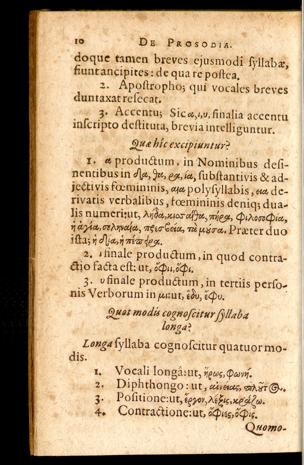 10 DE PROSODIA.
doque tamen breves ejusmodi syllabæ,
fiunt ancipites: de qua re postea.
2. Apostropho; qui vocales breves
duntaxat resecat.
3. Accentu; Sic α,ι,υ. finalia accentu
inscripto destituta, brevia intelliguntur.
Quæ hîc excipiuntur?
1. α productum, in Nominibus desi-
nentibus in substantivis & ad-
jectivis fœmininis, αια polysyllabis, εια de-
rivatis verbalibus, fœmininis deniq; dua-
lis numeri: ut, λήδα, πήρα, φιλοσοφία,
ἡ ἁγία, σεληναία, τὰ μούσα. Præter duo
ista; ἡ δῖα, ἡ πότνια.
2. ι finale productum, in quod contra-
ctio facta est: ut, ὄφιι, ὄφι.
3. υ finale productum, in tertiis perso-
nis Verborum in μι: ut, ἔδυ, ἔφυ.
Quot modis cognoscitur syllaba
longa?
Longa syllaba cognoscitur quatuor mo-
dis.
1. Vocali longâ: ut, ἥρως, φωνή.
2. Diphthongo: ut, αἰνείας, πλοῦτος.
3. Positione: ut, ἔργον, λέξις, κράζω.
4. Contractione: ut, ὄφιες, ὄφις.
Quomo-